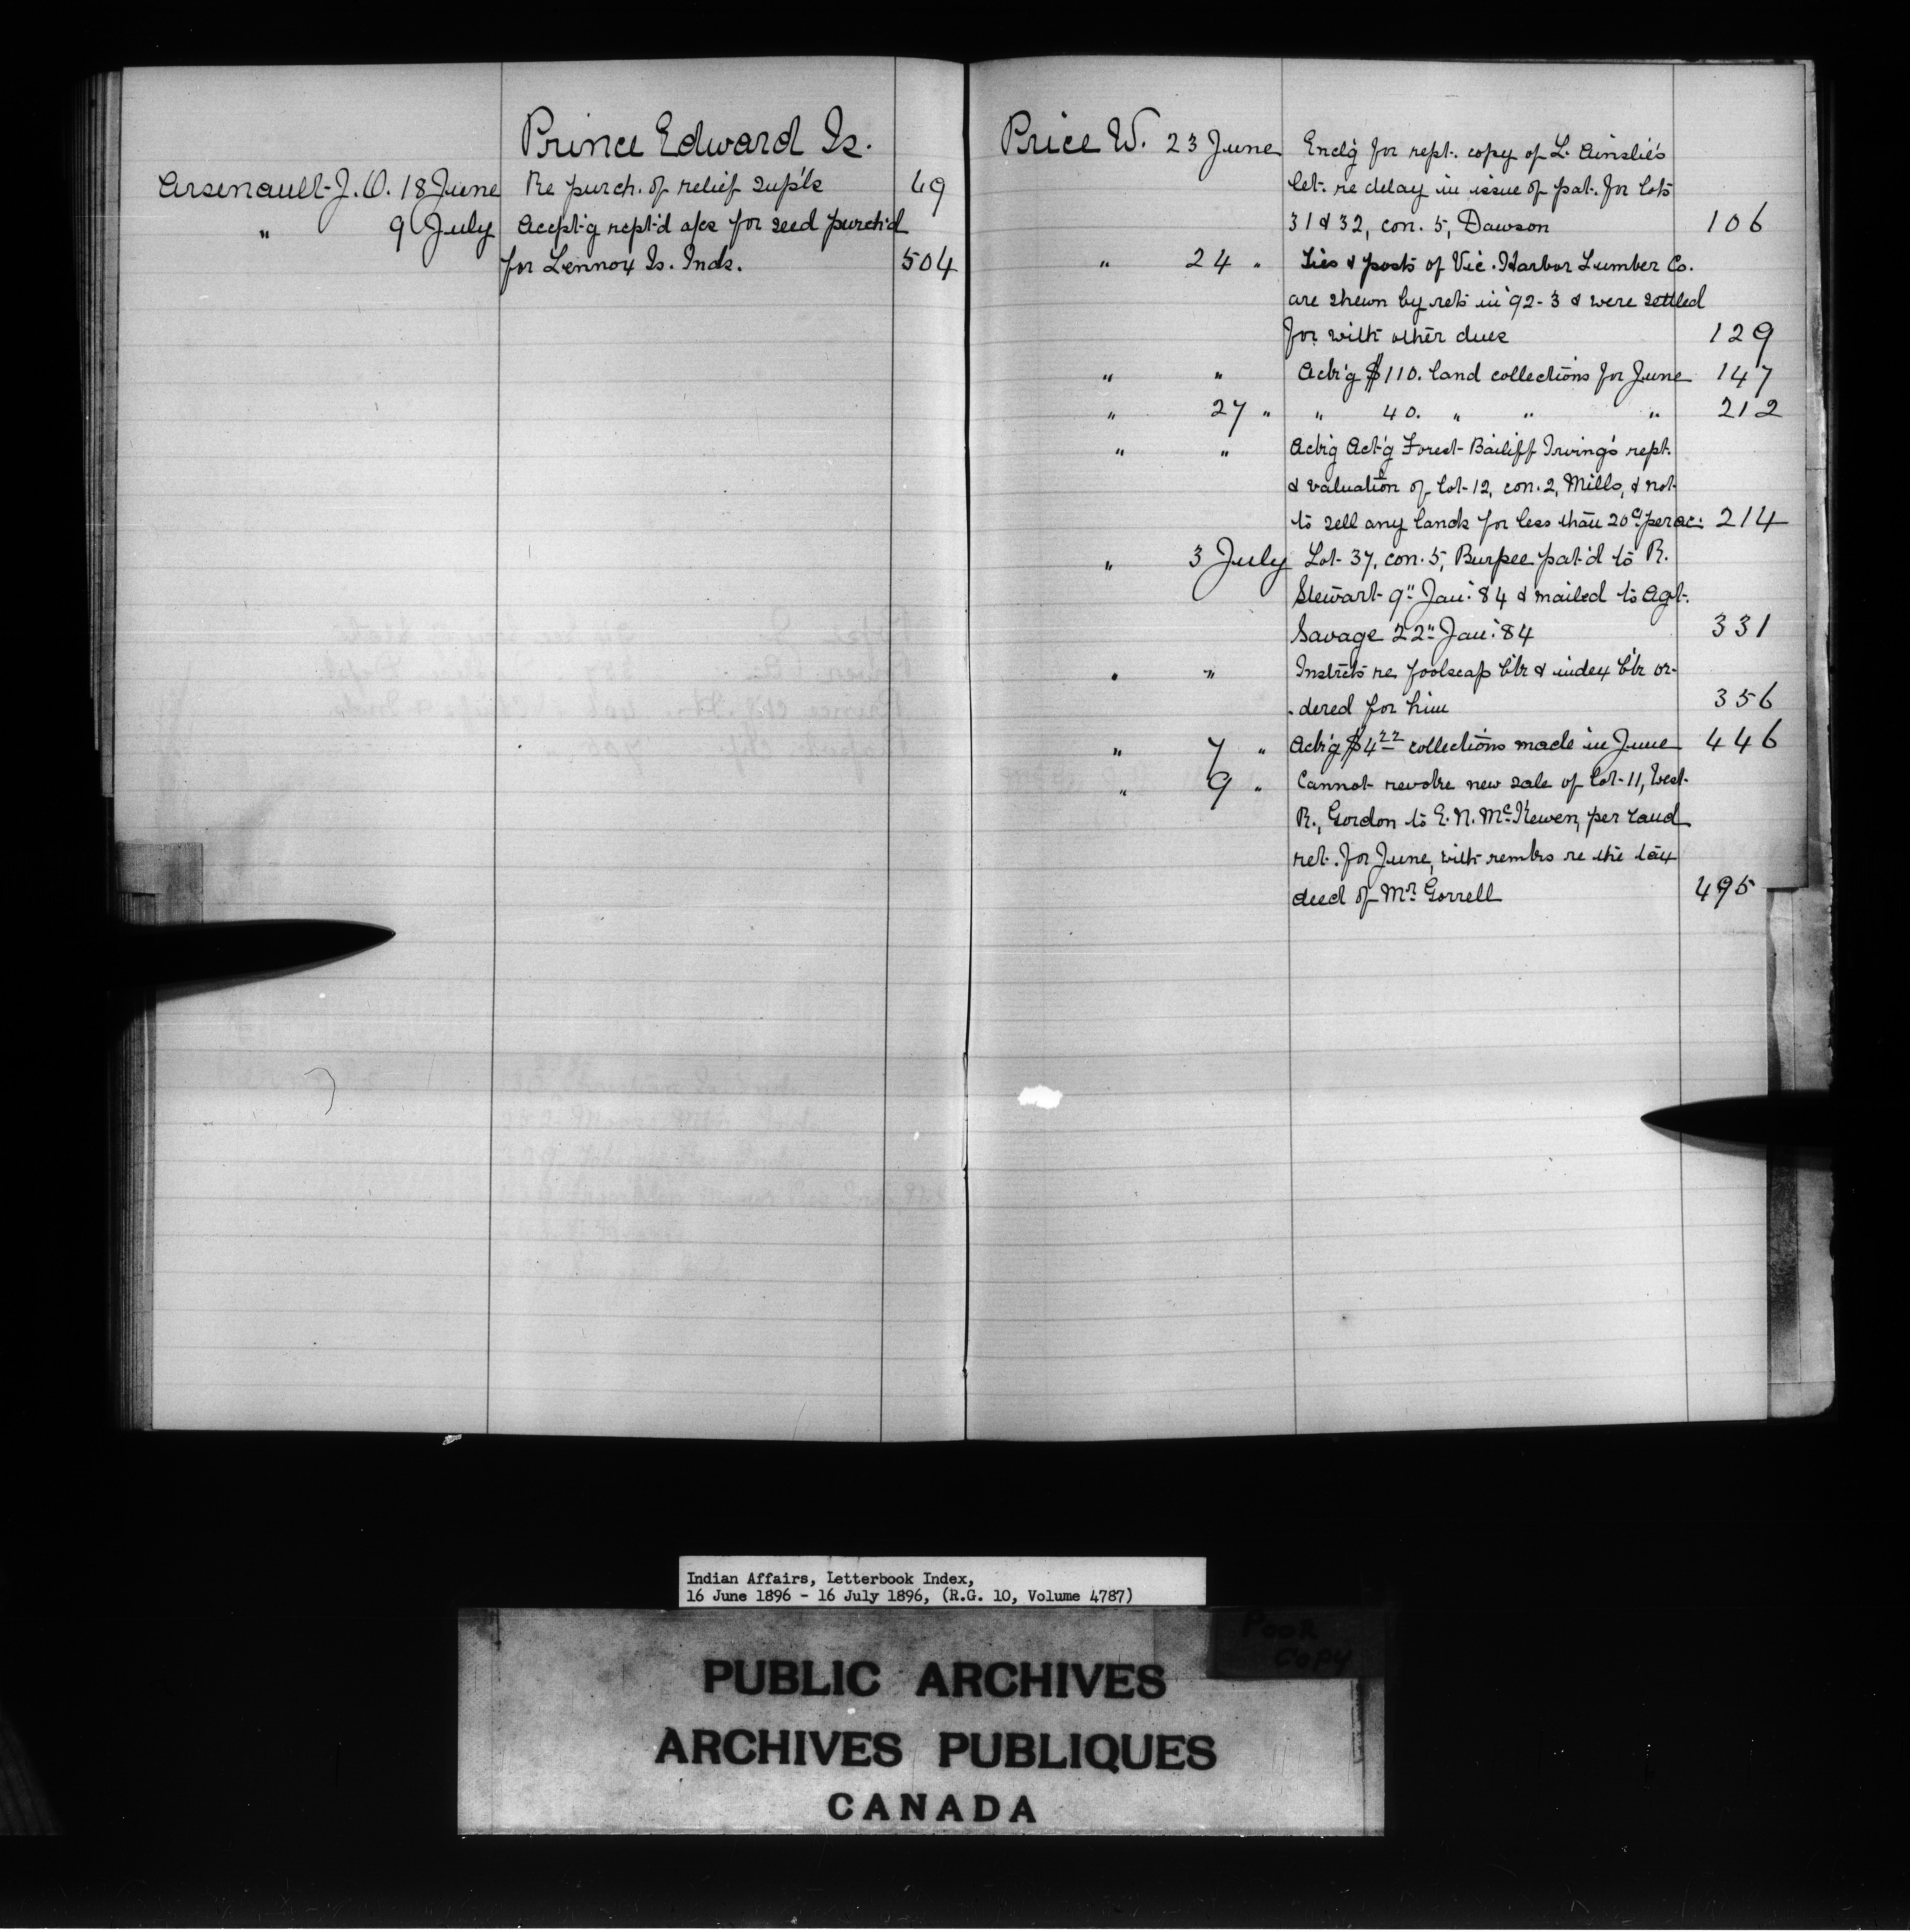 Prince Edward Is.
Arsenault J. O. 18 June Re purch. of relief sup'ls 49
" 9 July Accpt'g rept'd a/cs for seed purch'd
for Lennox Is. Inds. 504
Price W. 23 June Encl'g for rept. copy of L. Ainslie's
let. re delay in issue of pat. for lots
31 & 32, con. 5, Dawson 106
" 24 " Ties & posts of Vic. Harbor Lumber Co.
are shewn by rets in '92-3 & were settled
for with other dues 129
" " Ack'g $110. land collections for June 147
" 27 " " 40. " " " 212
" " Ack'g Act'g Forest Bailiff Irving's rept.
& valuation of lot 12, con. 2, Mills, & not
to sell any lands for less than 20c per ac. 214
" 3 July Lot 37, con. 5, Burpee pat'd to R.
Stewart 9" Jan: 84 & mailed to Agt.
Savage 22" Jan: '84 331
" " Instrcts re foolscap b'k & index b'k or-
-dered for him 356
" 7 " Ack'g $4 22 collections made in June 446
" 9 " Cannot revoke new sale of lot 11, West
R., Gordon to E. N. McKewen, per land
ret. for June, with remks re the tax
deed of Mr Gorrell 495
Indian Affairs, Letterbook Index,
16 June 1896 - 16 July 1896, (R.G. 10, Volume 4787)
POOR
COPY
PUBLIC ARCHIVES
ARCHIVES PUBLIQUES
CANADA